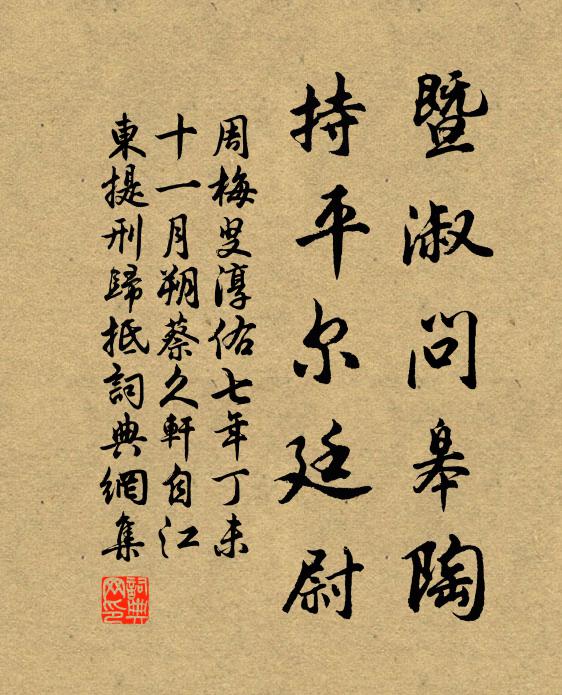 暨淑问皋陶
持平尔廷尉
周梅叟淳佑七年丁未
十一月朔蔡久軒自江
東提刑歸抵詞典網集
詞典网印